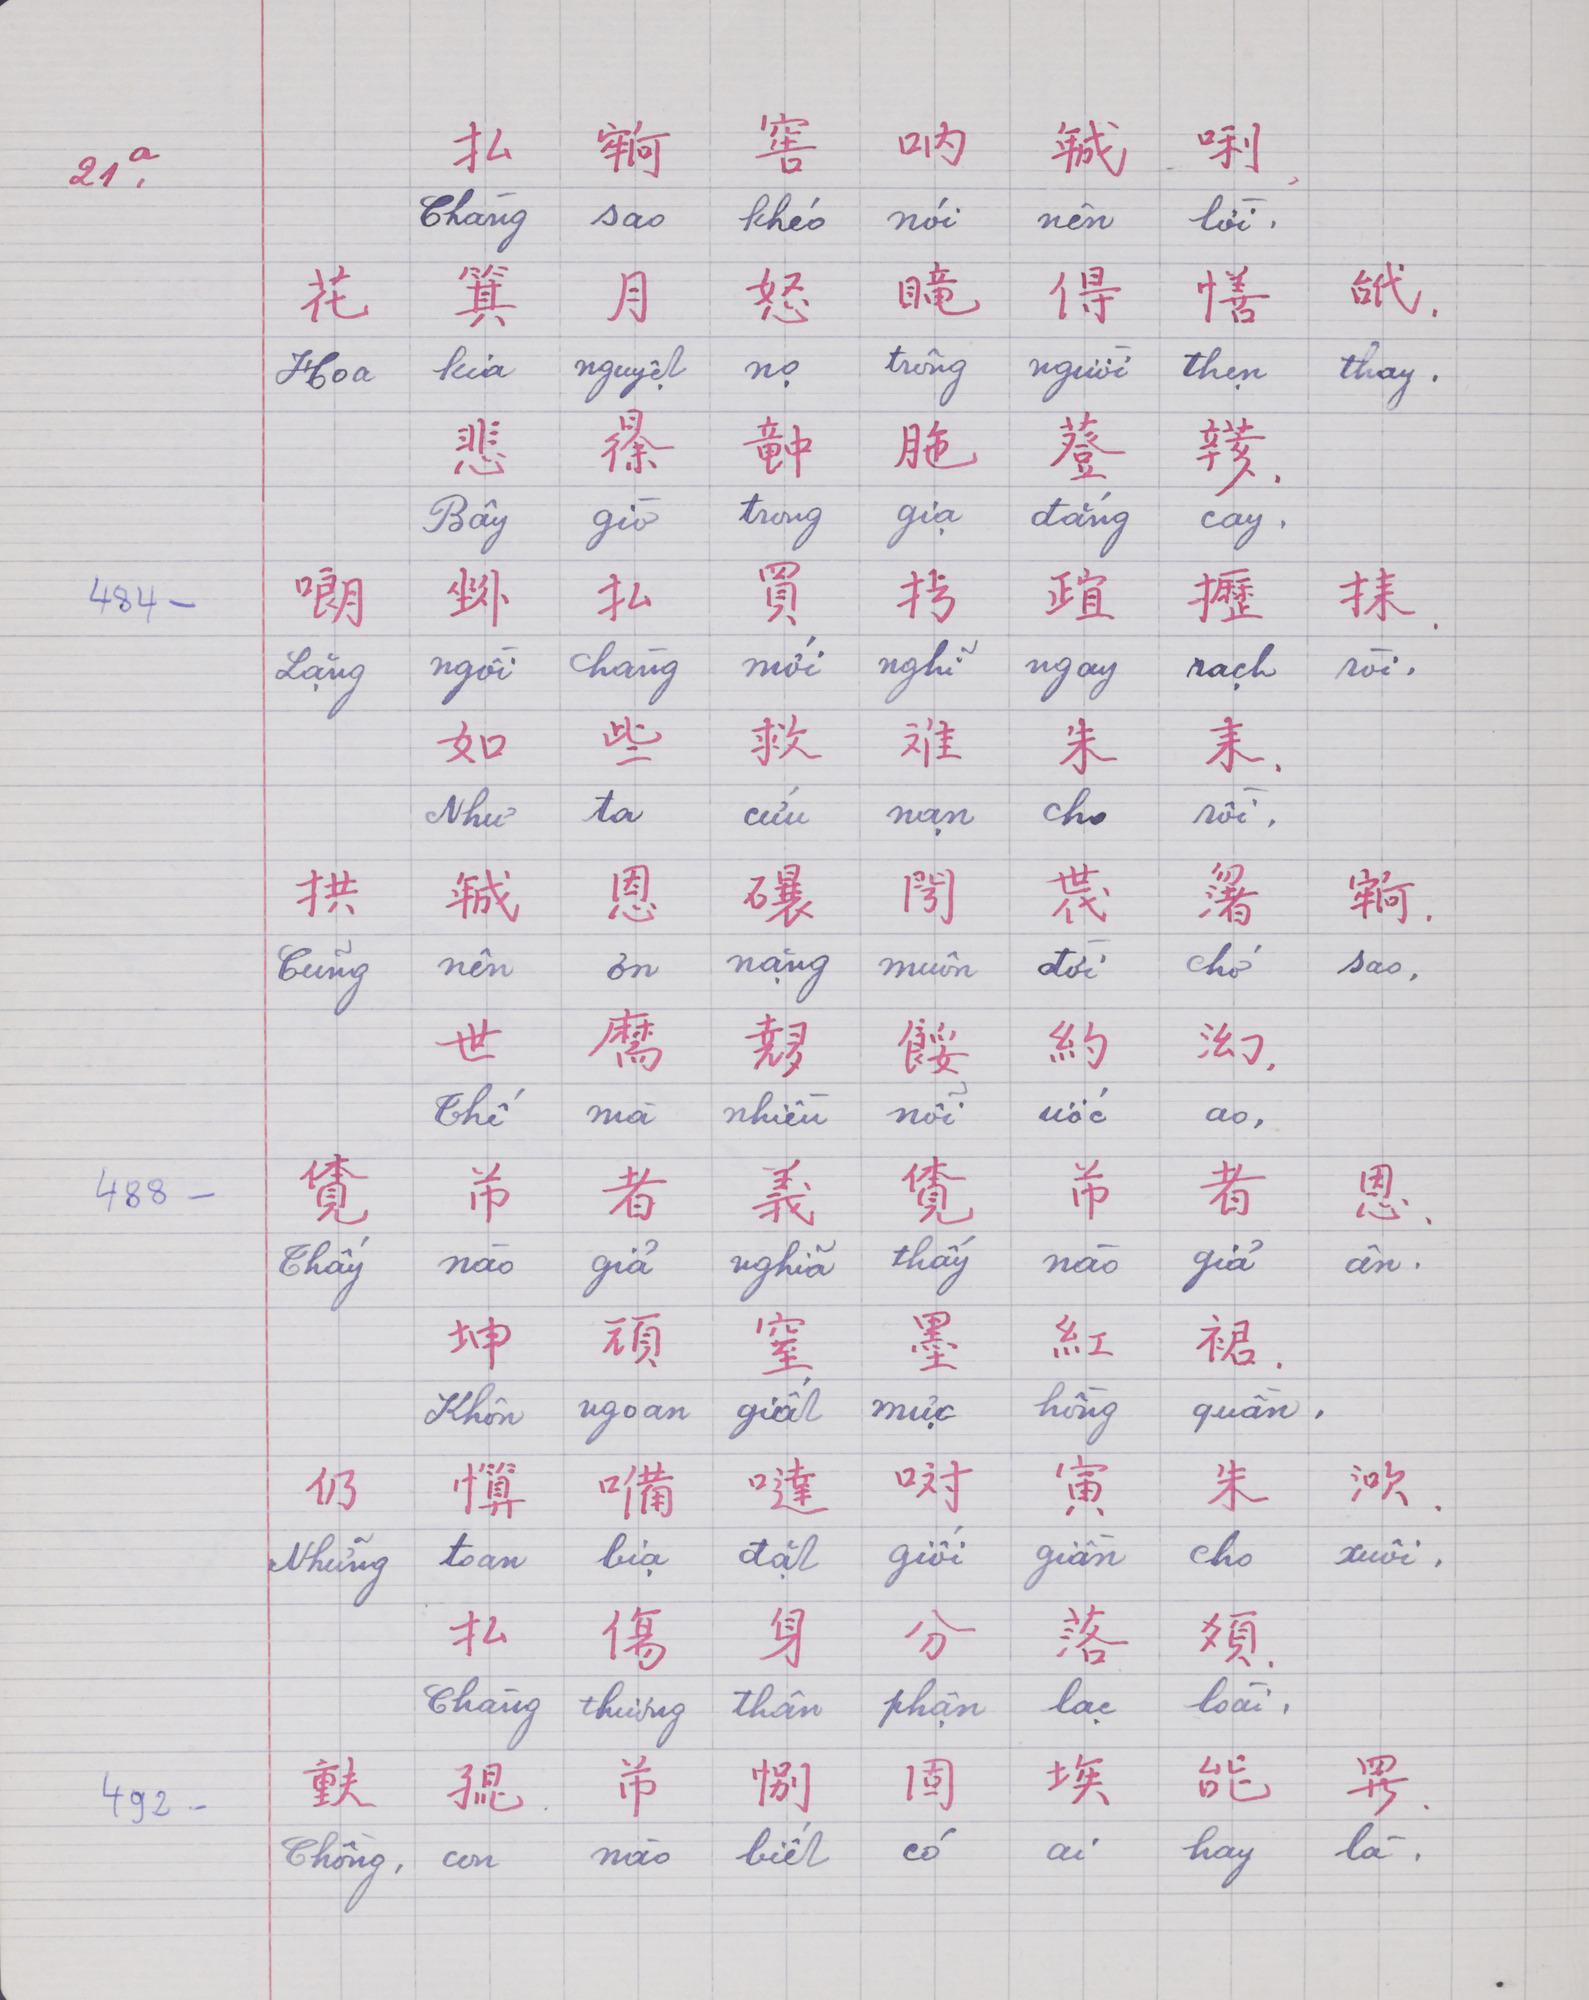 21a.
払 𡨸 窖 吶 𢧚 唎,
Chàng sao khéo nói nên lời,
花 箕 月 怒 𥊚 㝵 𢢆 台.
Hoa kia nguyệt nọ trông người thẹn thay.
悲 𣇞 𥪝 胣 䔲 荄.
Bây giờ trong giạ đắng cay,
484 –
㫰 𡎥 払 買 𢪀 𣦍 攊 抹.
Lặng ngồi chàng mới nghĩ ngay rạch ròi,
如 些 救 难 朱 耒.
Như ta cứu nạn cho rồi,
拱 𢧚 恩 𥗾 𨷈 𠁀 渚 𡨸.
Cũng nên ơn nặng muôn đời chớ sao,
世 𦓡 𡗉 餒 約 泑.
Thế mà nhiều nỗi ước ao,
488 –
𧡊 芇 者 義 𧡊 芇 者 恩.
Thấy nào giả nghĩa thấy nào giả ân.
坤 頑 窒 墨 紅 裙.
Khôn ngoan giất mực hồng quần,
仍 𢢆 𠾦 噠 㗂 寅 朱 㳄.
Những toan bịa đặt giối giăn cho xuôi,
払 傷 身 分 落 類.
Chàng thương thân phận lạc loài,
492 –
𫯳 𡥵 芇 別 固 埃 能 羅.
Chồng, con nào biết có ai hay là,